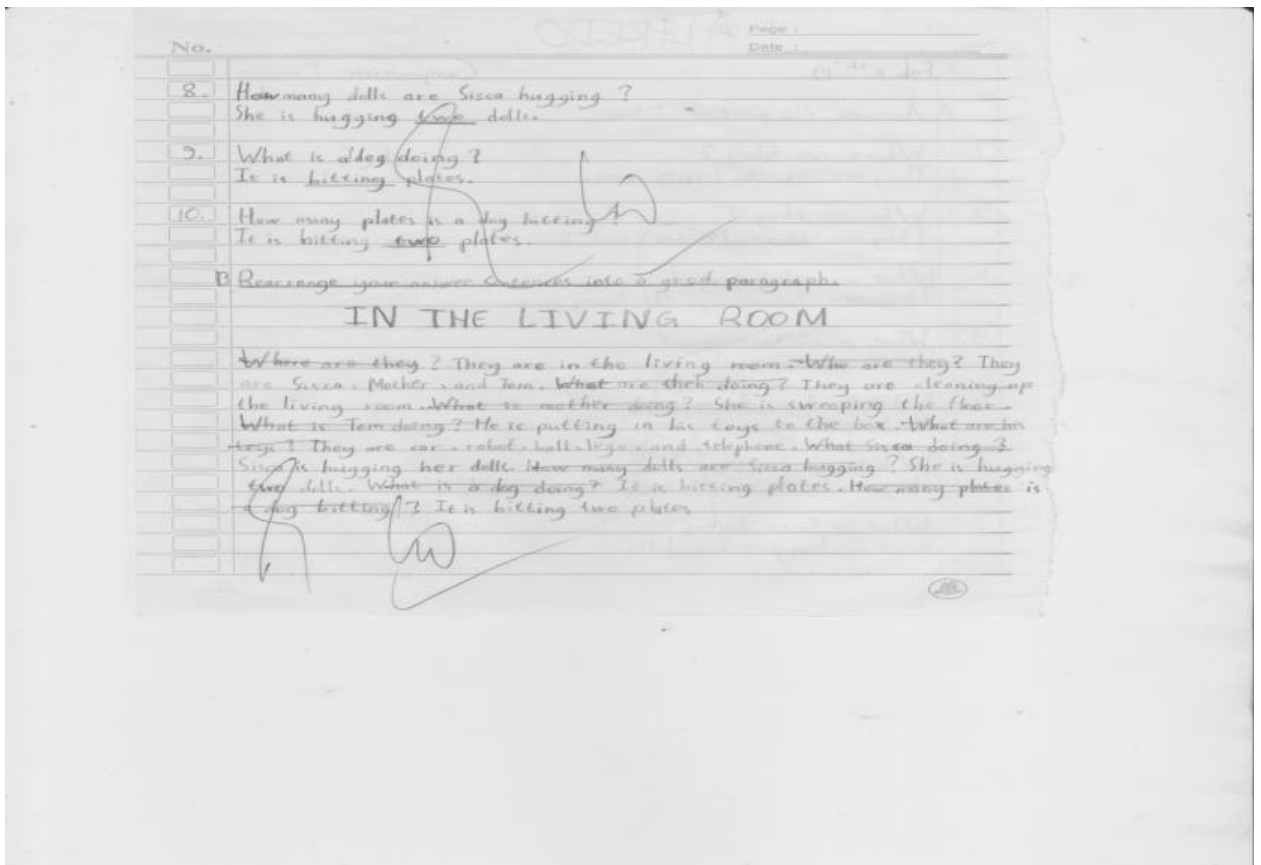 Page :
No.
Date :
8. How many dolls are Sisca hugging ?
She is hugging two dolls.
9. What is a dog doing ?
It is bitting plates.
10. How many plates is a dog bitting
It is bitting two plates.
B Rearrange your answer sentences into a good paragraph.
IN THE LIVING ROOM
Where are they ? They are in the living room. Who are they? They
are Sisca, Mother, and Tom. What are doing ? They are cleaning up
the living room. What is mother doing ? She is sweeping the floor.
What is Tom doing ? He is putting in his toys to the box. What are his
toys ? They are car, robot, ball, lego, and telephone. What Sisca doing ?
Sisca is hugging her dolls. How many dolls are Sisca hugging ? She is hugging
two dolls. What is a dog doing ? It is bitting plates. How many plates is
a dog bitting ? It is bitting two plates